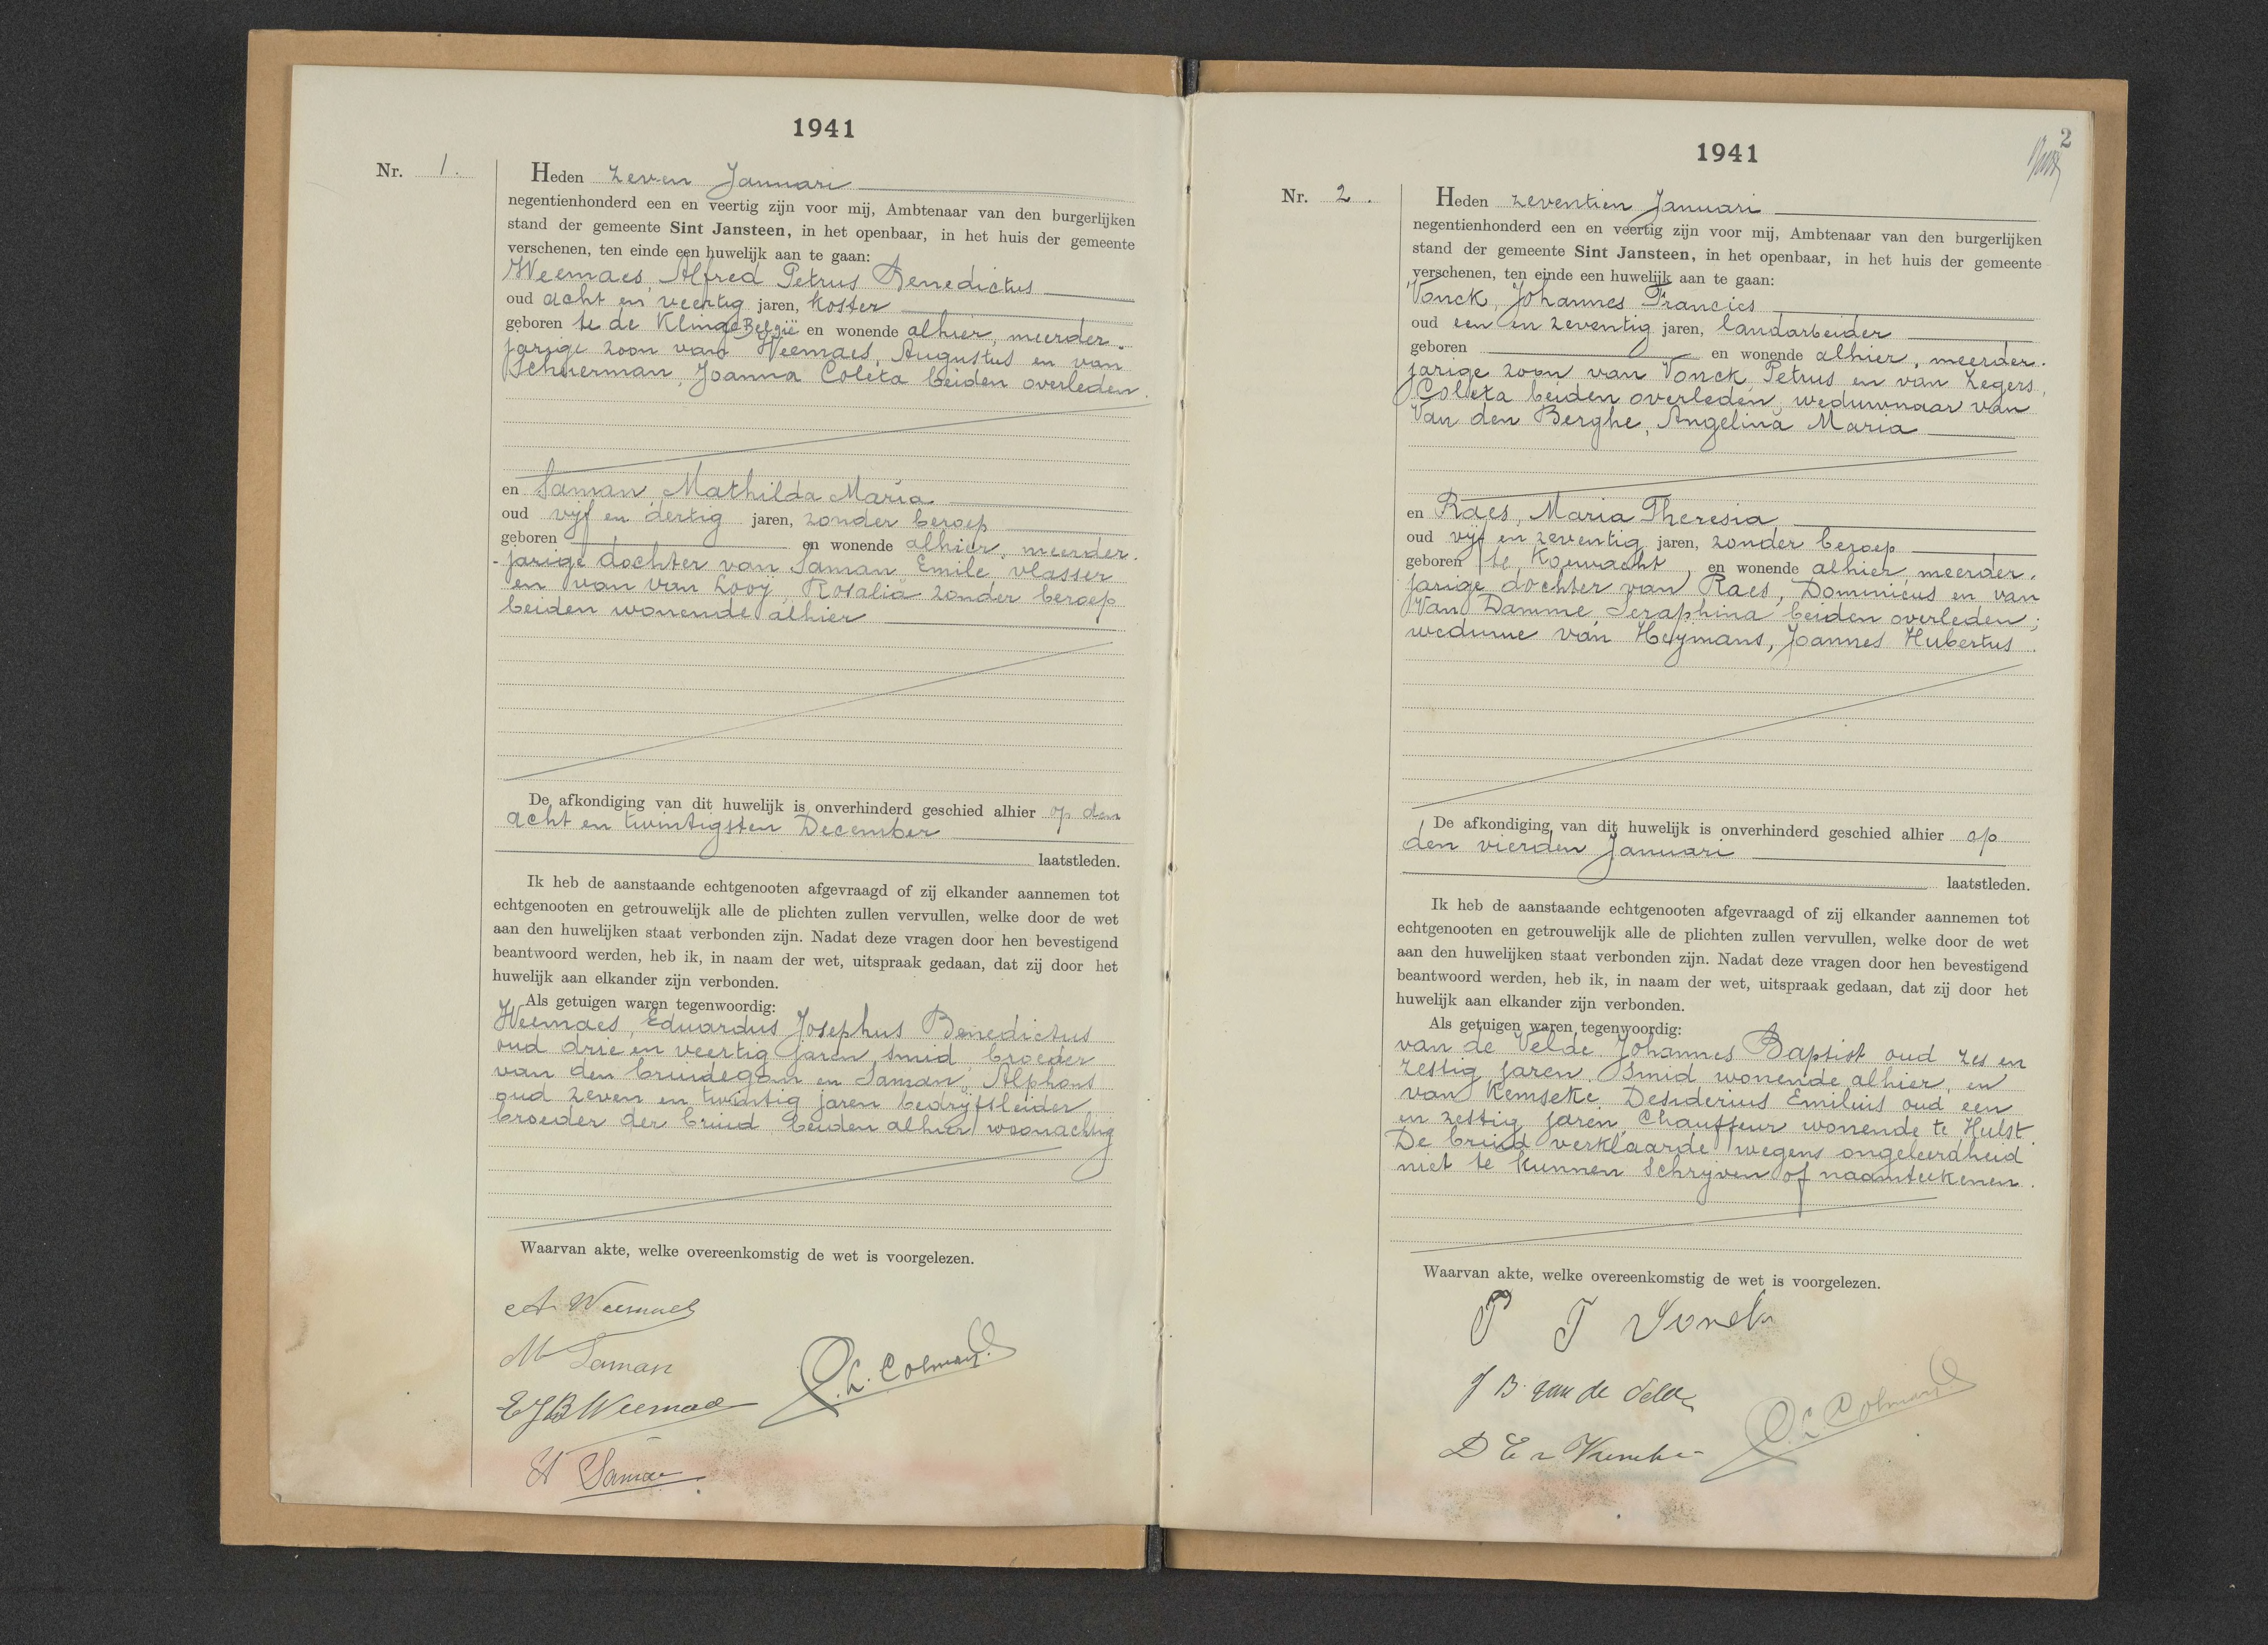 1941
Nr. 1.
Heden zeven Januari
negentienhonderd een en veertig zijn voor mij, Ambtenaar van den burgerlijken
stand der gemeente Sint Jansteen, in het openbaar, in het huis der gemeente
verschenen, ten einde een huwelijk aan te gaan:
Weemaes, Alfred Petrus Benedictus
oud acht en veertig jaren, koster
geboren te de Klinge België en wonende alhier, meerder-
jarige zoon van Weemaes, Augustus en van
Scheerman, Joanna Coleta beiden overleden.
en Saman, Mathilda Maria
oud vijf en dertig jaren, zonder beroep
geboren en wonende alhier, meerder-
-jarige dochter van Saman Emile, vlasser
en van van Looÿ, Rosalia zonder beroep
beiden wonende alhier
De afkondiging van dit huwelijk is onverhinderd geschied alhier op den
acht en twintigsten December
laatstleden.
Ik heb de aanstaande echtgenooten afgevraagd of zij elkander aannemen tot
echtgenooten en getrouwelijk alle de plichten zullen vervullen, welke door de wet
aan den huwelijken staat verbonden zijn. Nadat deze vragen door hen bevestigend
beantwoord werden, heb ik, in naam der wet, uitspraak gedaan, dat zij door het
huwelijk aan elkander zijn verbonden.
Als getuigen waren tegenwoordig:
Weemaes, Eduardus Josephus Benedictus
oud drie en veertig jaren, smid, broeder
van den bruidegom en Saman, Alphons
oud zeven en twintig jaren bedrijfsleider
broeder der bruid, beiden alhier woonachtig
Waarvan akte, welke overeenkomstig de wet is voorgelezen.
A Weemaes
M Saman
EJB Weemaes
A Saman
C.L. Colman
2
1941
Nr. 2.
Heden zeventien Januari
negentienhonderd een en veertig zijn voor mij, Ambtenaar van den burgerlijken
stand der gemeente Sint Jansteen, in het openbaar, in het huis der gemeente
verschenen, ten einde een huwelijk aan te gaan:
Vonck, Johannes Francies
oud een en zeventig jaren, landarbeider
geboren en wonende alhier, meerder-
jarige zoon van Vonck, Petrus en van Zegers,
Coleta beiden overleden, weduwnaar van
Van den Berghe, Angelina Maria
en Raes, Maria Theresia
oud vijf en zeventig jaren, zonder beroep
geboren te Koewacht, en wonende alhier, meerder-
jarige dochter van Raes, Dominicus en van
Van Damme, Seraphina beiden overleden;
weduwe van Heijmans, Joannes Hubertus.
De afkondiging van dit huwelijk is onverhinderd geschied alhier op
den vierden Januari
laatstleden.
Ik heb de aanstaande echtgenooten afgevraagd of zij elkander aannemen tot
echtgenooten en getrouwelijk alle de plichten zullen vervullen, welke door de wet
aan den huwelijken staat verbonden zijn. Nadat deze vragen door hen bevestigend
beantwoord werden, heb ik, in naam der wet, uitspraak gedaan, dat zij door het
huwelijk aan elkander zijn verbonden.
Als getuigen waren tegenwoordig:
van de Velde Johannes Baptist oud zes en
zestig jaren, smid wonende alhier, en
van Kemseke Desiderius Emilius oud een
en zestig jaren, Chauffeur wonende te Hulst.
De bruid verklaarde wegens ongeleerdheid
niet te kunnen schrijven of naamteekenen.
Waarvan akte, welke overeenkomstig de wet is voorgelezen.
Vonck
J B van de Velde
D E
Colman